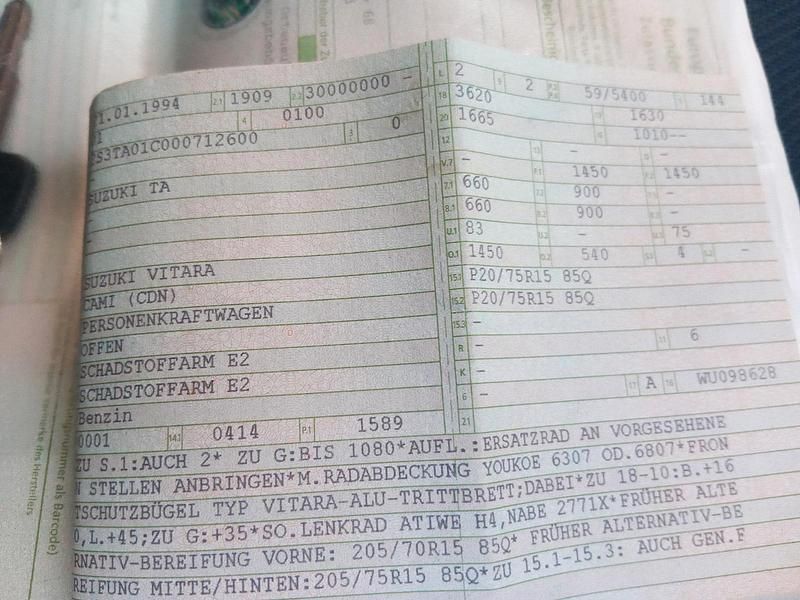 L 2 9 2 59/5400 144
1.01.1994 2.1 1909 2.2 30000000 - 18 3620 1630
1 4 0100 20 1665 1010--
S3TA01C000712600 3 0 12 - 13 - -
V.7 - F.1 1450 F.2 1450
SUZUKI TA 7.1 660 7.2 900 -
- 8.1 660 8.2 900 -
- U.1 83 U.2 - U.3 75
SUZUKI VITARA O.1 1450 O.2 540 S.1 4 S.2 -
CAMI (CDN) 15.1 P20/75R15 85Q
PERSONENKRAFTWAGEN 15.2 P20/75R15 85Q
OFFEN 15.3 -
SCHADSTOFFARM E2 R - 11 6
SCHADSTOFFARM E2 K -
Benzin 6 - 17 A 16 WU098628
0001 14.1 0414 P.1 1589 21
ZU S.1:AUCH 2* ZU G:BIS 1080*AUFL.:ERSATZRAD AN VORGESEHENE
N STELLEN ANBRINGEN*M.RADABDECKUNG YOUKOE 6307 OD.6807*FRON
TSCHUTZBÜGEL TYP VITARA-ALU-TRITTBRETT;DABEI*ZU 18-10:B.+16
0,L.+45;ZU G:+35*SO.LENKRAD ATIWE H4,NABE 2771X*FRÜHER ALTE
RNATIV-BEREIFUNG VORNE: 205/70R15 85Q* FRÜHER ALTERNATIV-BE
REIFUNG MITTE/HINTEN:205/75R15 85Q*ZU 15.1-15.3: AUCH GEN.F